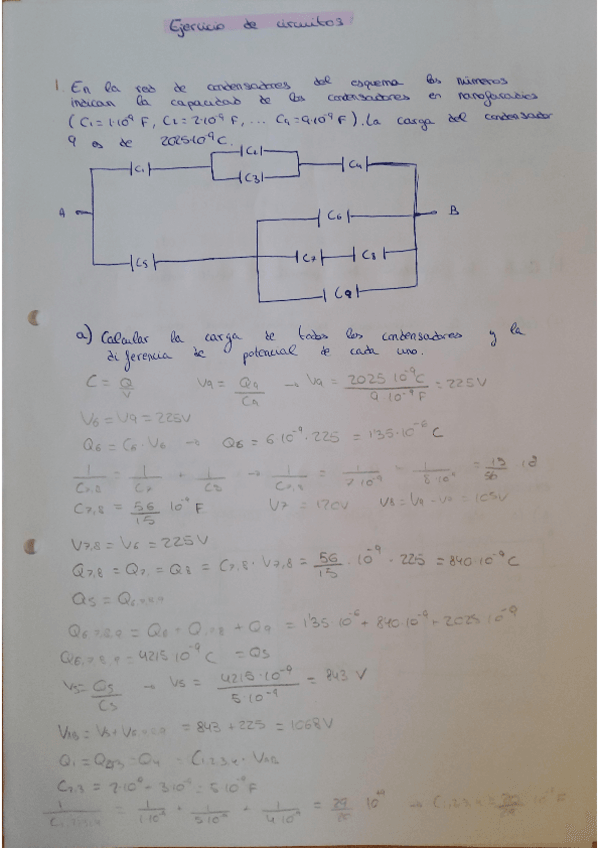 Ejercicio de circuitos
1. En la red de condensadores del esquema los números
indican la capacidad de los condensadores en nanofaradios
(C1=1·10⁻⁹ F, C2=2·10⁻⁹F, ... C9=9·10⁻⁹F). La carga del condensador
9 es de 2025·10⁻⁹C.
C2
C1 C3 C4
A B
C6
C5 C7 C8
C9
a) Calcular la carga de todos los condensadores y la
diferencia de potencial de cada uno.
C = Q/V V9 = Q9/C9 → V9 = 2025·10⁻⁹C / 9·10⁻⁹F = 225V
V6 = V9 = 225V
Q6 = C6·V6 → Q6 = 6·10⁻⁹·225 = 1'35·10⁻⁶ C
1/C7,8 = 1/C7 + 1/C8 → 1/C7,8 = 1/7·10⁻⁹ + 1/8·10⁻⁹ = 15/56
C7,8 = 56/15 10⁻⁹ F V7 = 120V V8 = V9 - V7 = 105V
V7,8 = V6 = 225V
Q7,8 = Q7 = Q8 = C7,8 · V7,8 = 56/15 · 10⁻⁹ · 225 = 840·10⁻⁹C
Q5 = Q6,7,8,9
Q6,7,8,9 = Q6 + Q7,8 + Q9 = 1'35·10⁻⁶ + 840·10⁻⁹ + 2025·10⁻⁹
Q6,7,8,9 = 4215·10⁻⁹C = Q5
V5 = Q5/C5 → V5 = 4215·10⁻⁹ / 5·10⁻⁹ = 843 V
VAB = V5 + V6,7,8,9 = 843 + 225 = 1068V
Q1 = Q2,3 = Q4 = C1,2,3,4 · VAB
C2,3 = 2·10⁻⁹ + 3·10⁻⁹ = 5·10⁻⁹F
1/C1,2,3,4 = 1/1·10⁻⁹ + 1/5·10⁻⁹ + 1/4·10⁻⁹ = 29/20 → C1,2,3,4 = 20/29 10⁻⁹ F